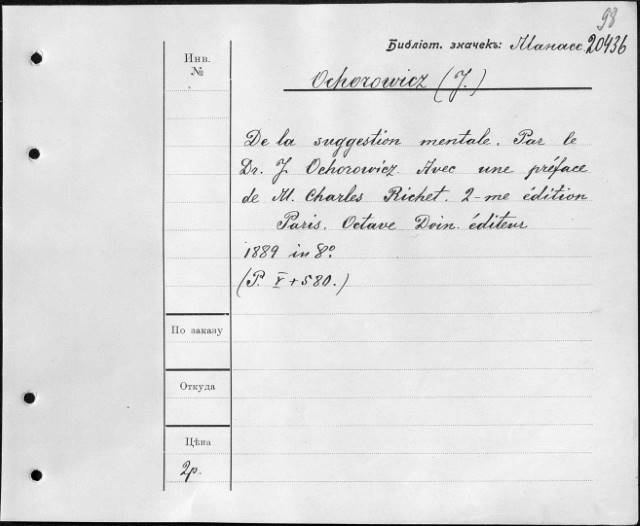 98
Библіот. значекъ: Манасс. 20436
Инв.
№
Ochorowicz (J.)
De la suggestion mentale. Par le
Dr. J. Ochorowicz. Avec une préface
de M. Charles Richet. 2-me édition
Paris. Octave Doin. éditeur
1889 in 8°.
(P. V + 580.)
По заказу
Откуда
Цѣна
2р.